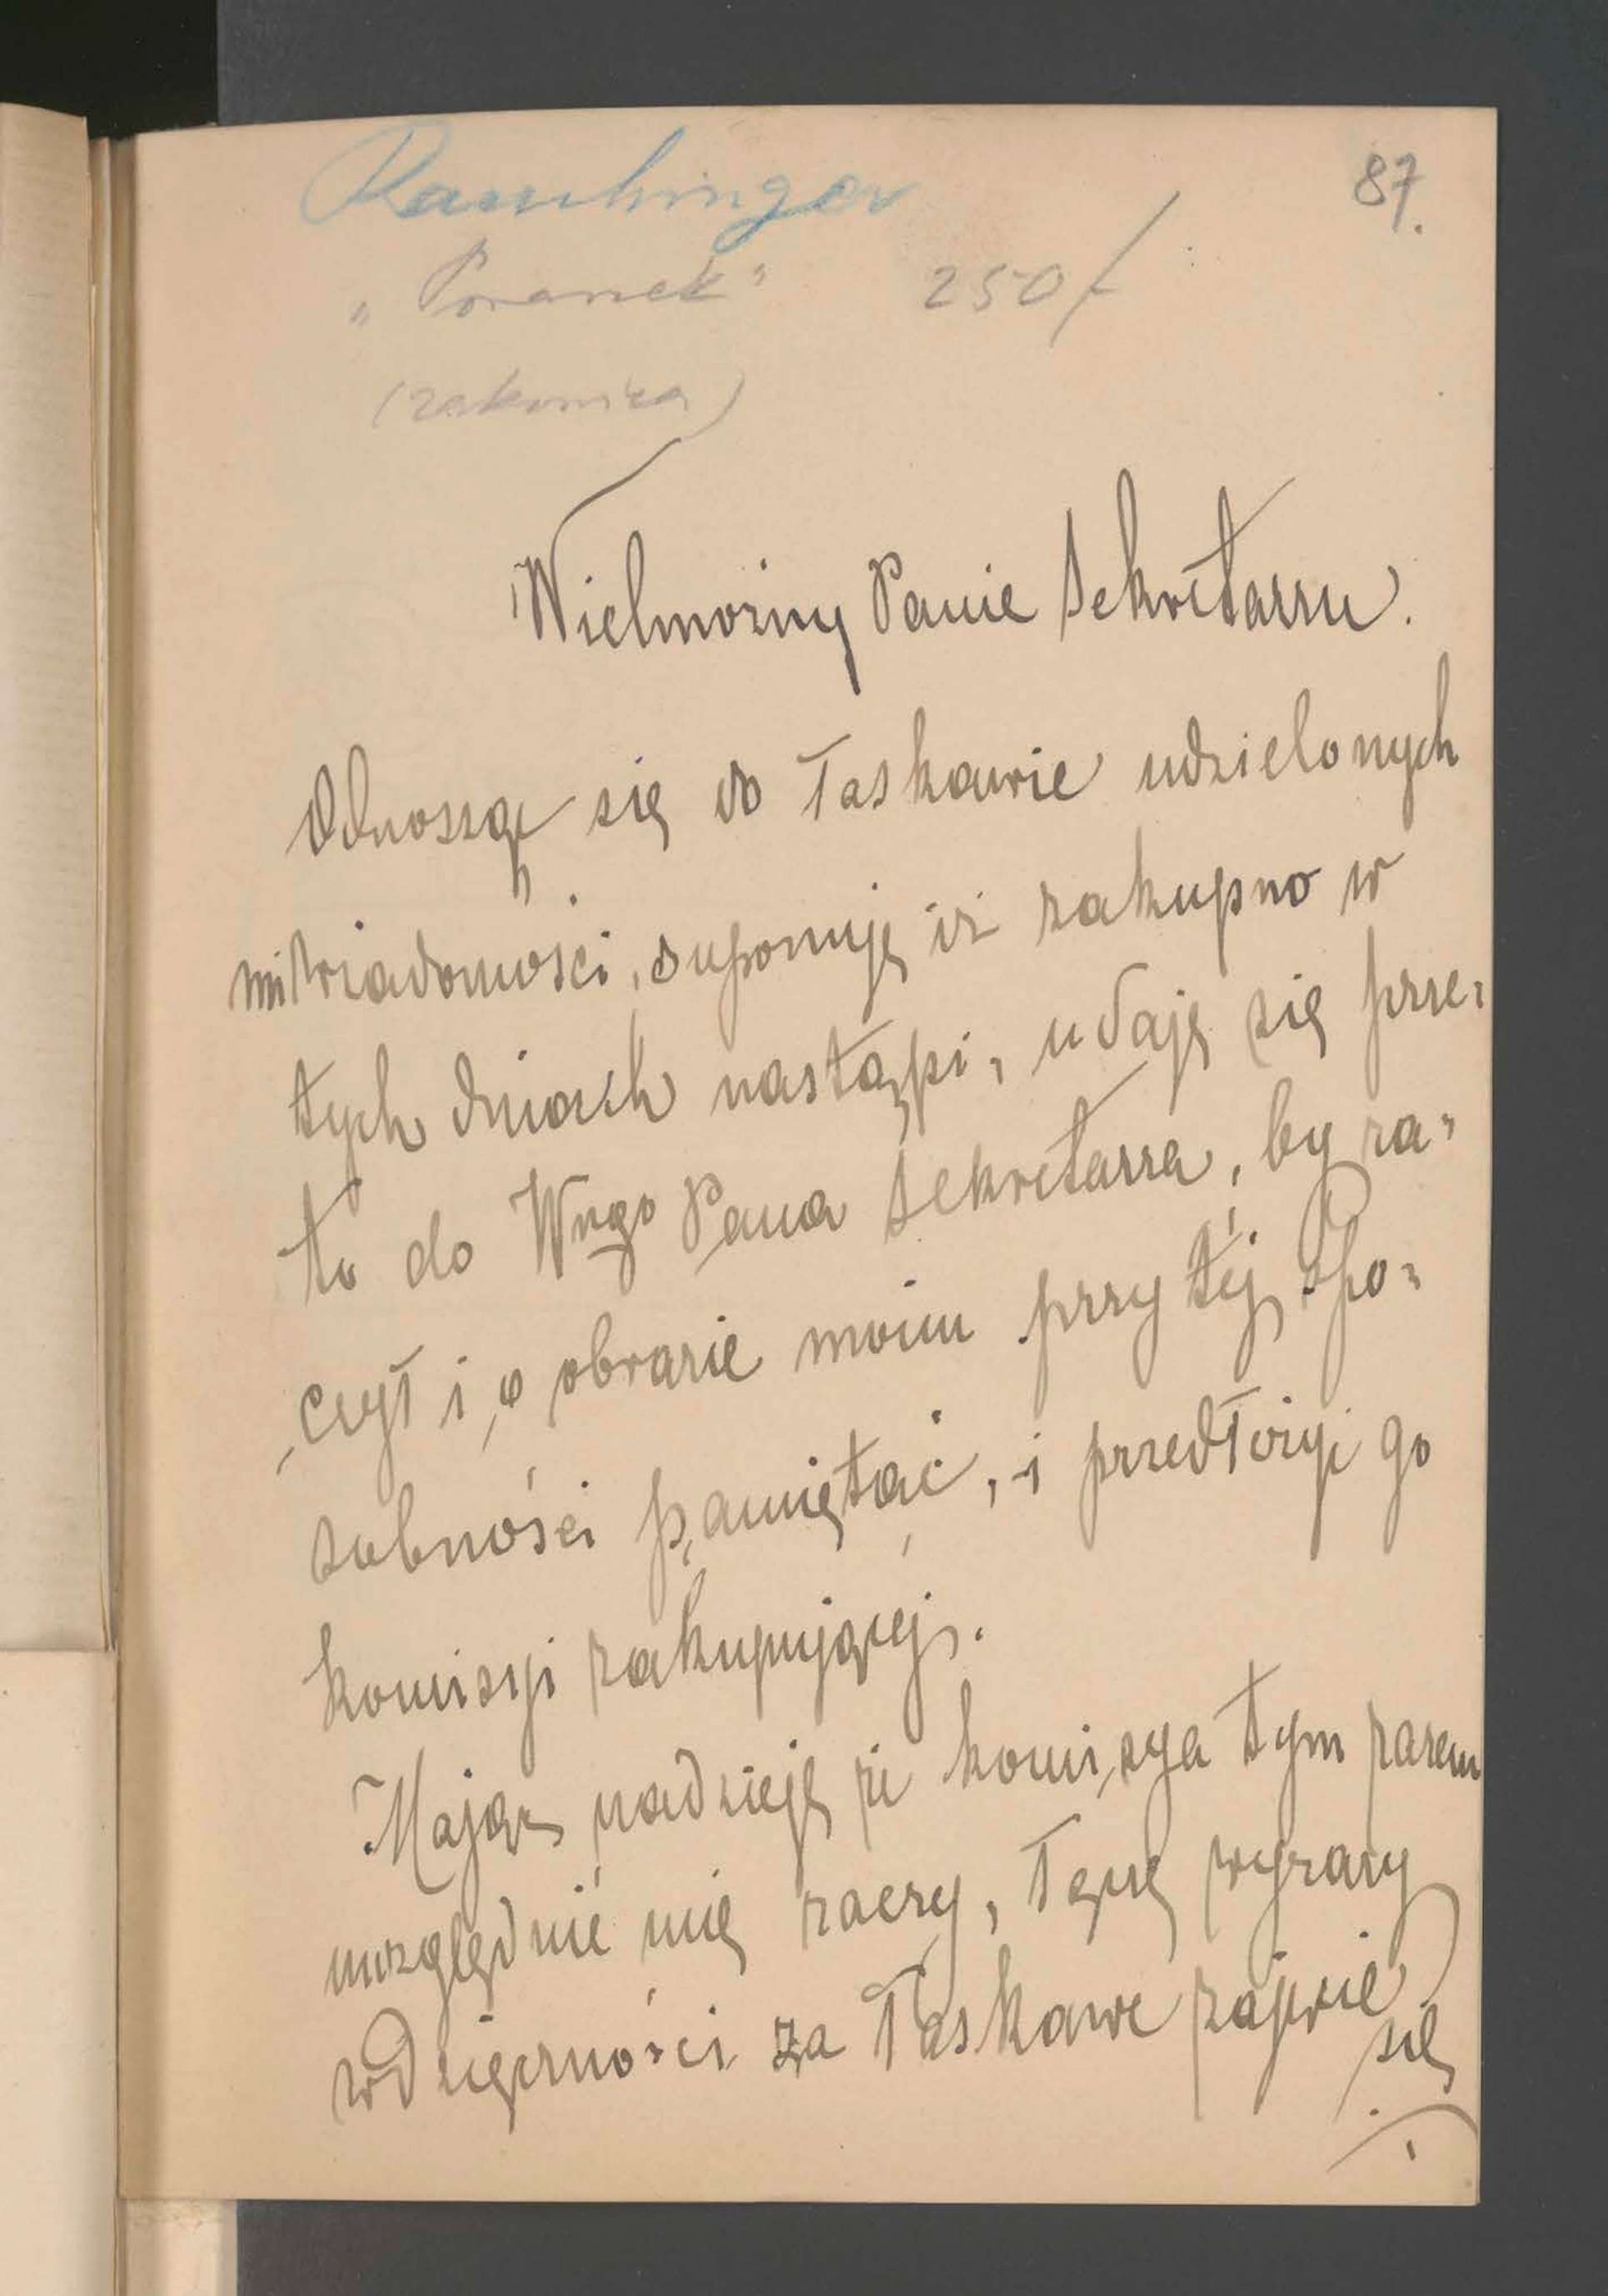 Rauchinger
87.
„Poranek” 250/
(zakonnica)
Wielmożny Panie Sekretarzu.
Odnosząc się do łaskawie udzielonych
mi wiadomości, suponuję iż zakupno w
tych dniach nastąpi, udaję się prze=
to do Wngo Pana Sekretarza, by ra=
czył i o obrazie moim przy téj spo=
sobności pamiętać, i przedłożyć go
komisyi zakupującej.
Mając nadzieję że komisya tym razem
uwzględnić mię raczy, łączę wyrazy
wdzięczności za łaskawe zajęcie
się